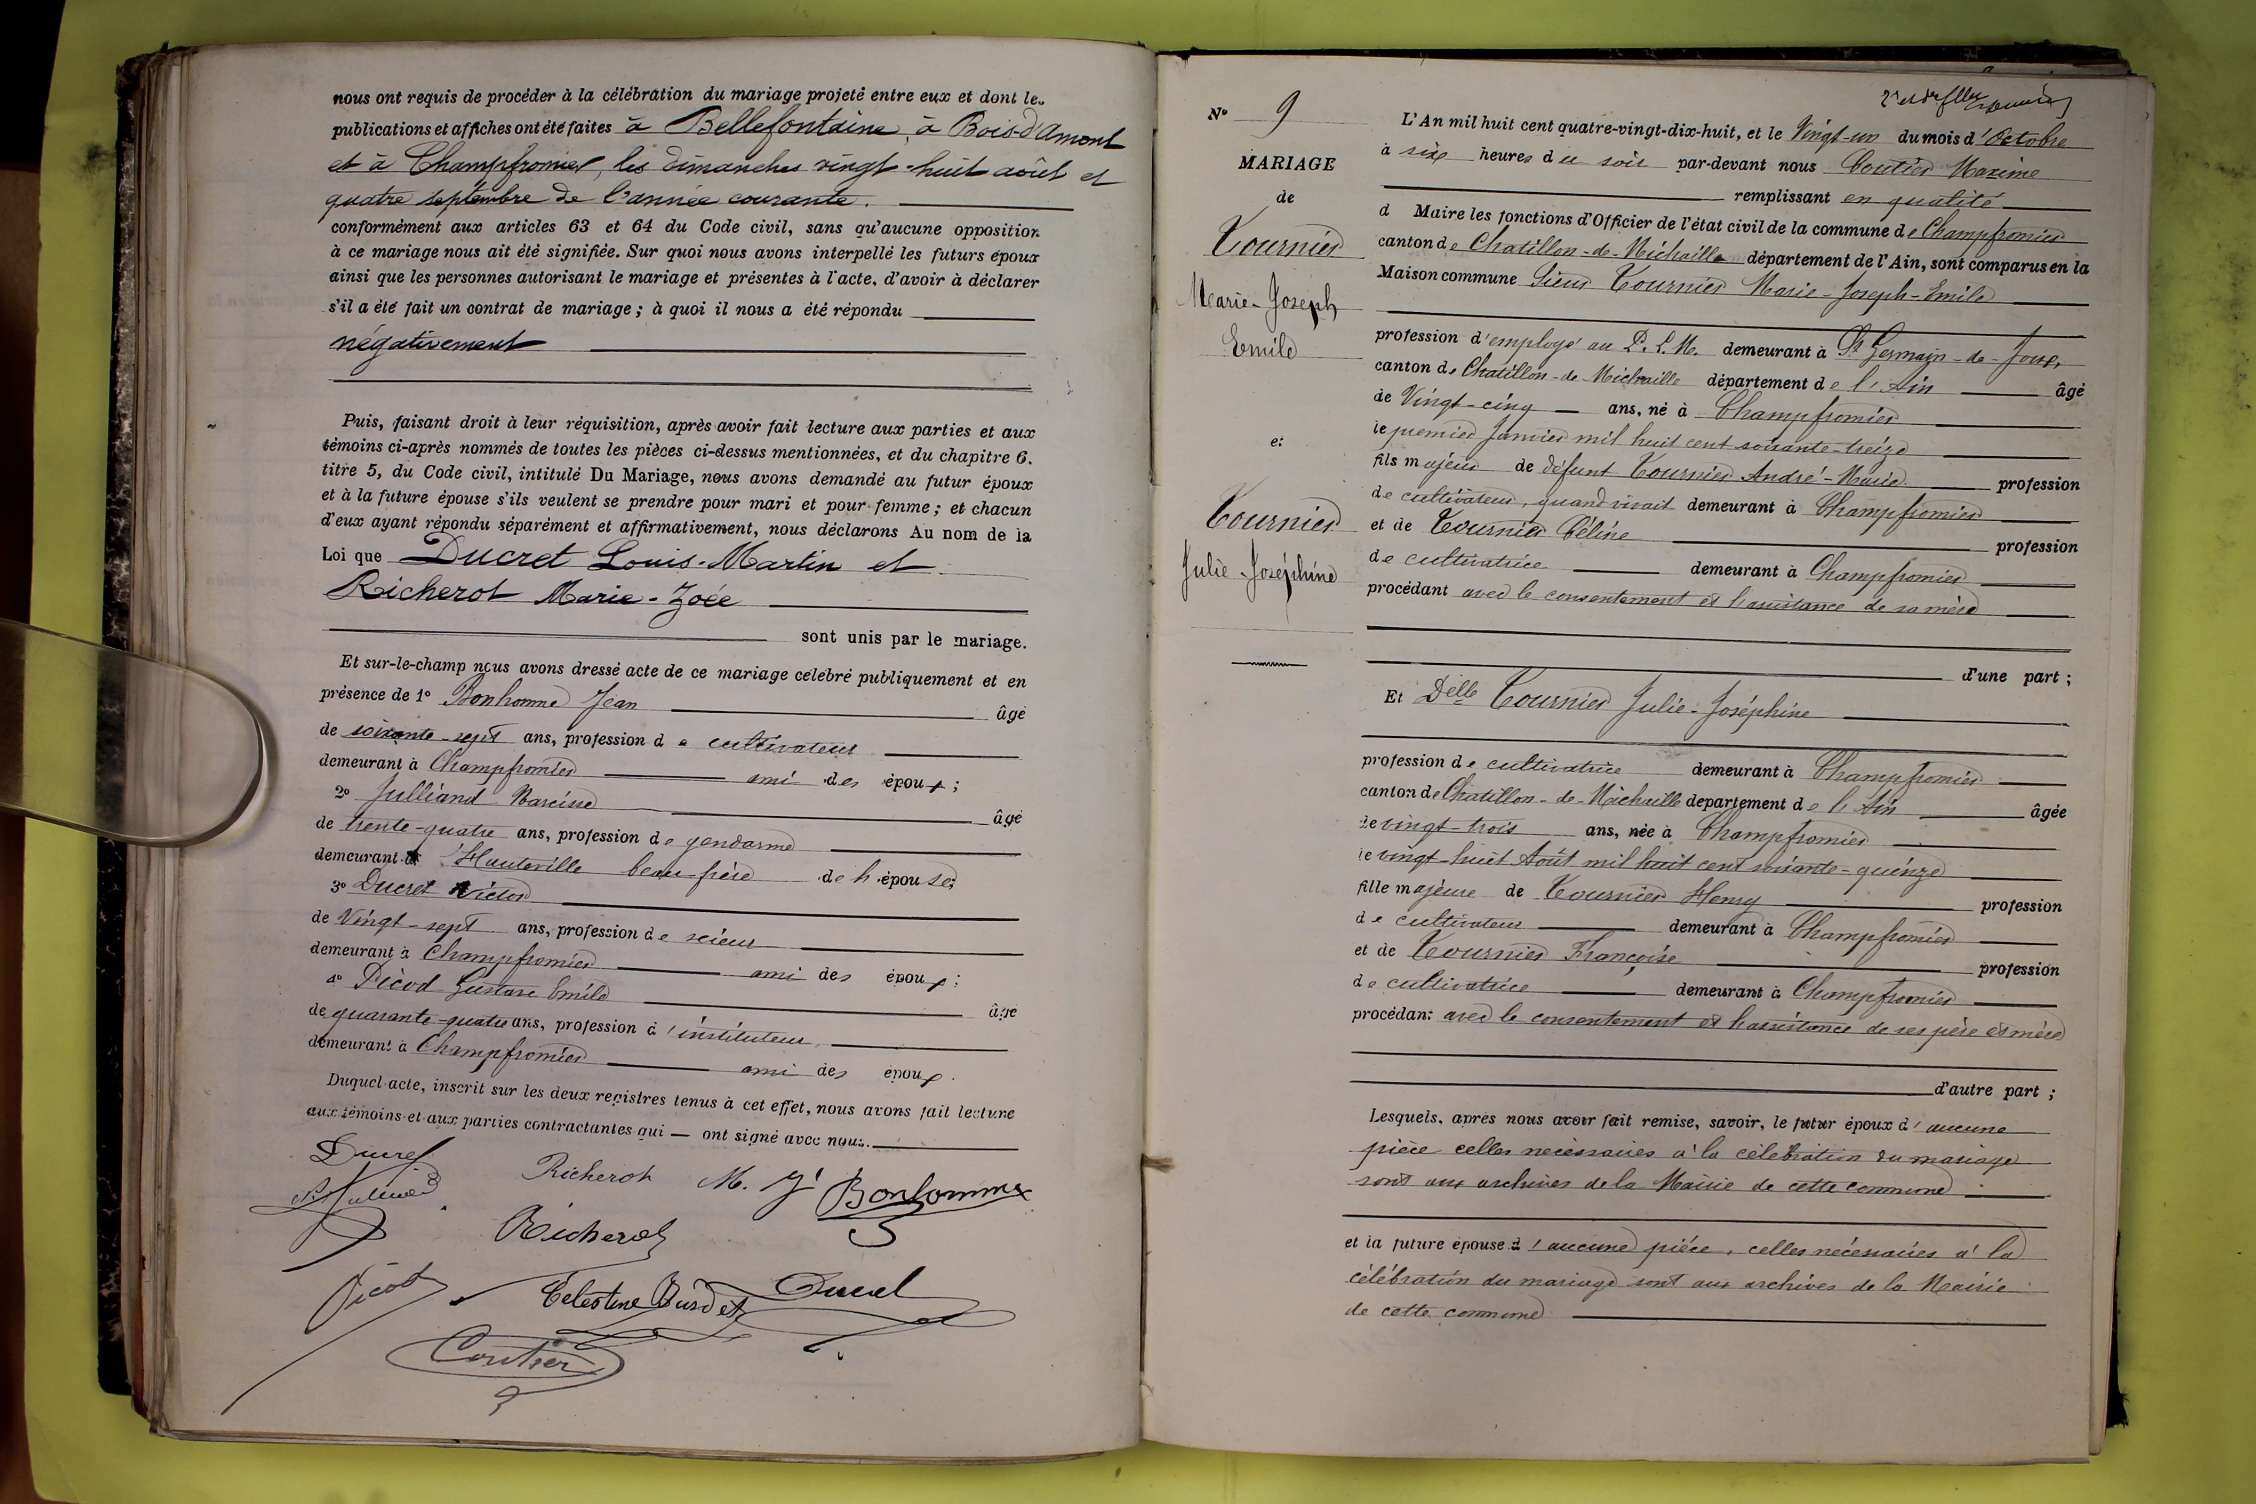 nous ont requis de procéder à la célébration du mariage projeté entre eux et dont les
publications et affiches ont été faites à Bellefontaine, à Bois-d'Amont
et à Champfromier, les dimanches vingt-huit août et
quatre septembre de l'année courante.
conformément aux articles 63 et 64 du Code civil, sans qu'aucune opposition
à ce mariage nous ait été signifiée. Sur quoi nous avons interpellé les futurs époux
ainsi que les personnes autorisant le mariage et présentes à l'acte, d'avoir à déclarer
s'il a été fait un contrat de mariage ; à quoi il nous a été répondu
négativement
Puis, faisant droit à leur réquisition, après avoir fait lecture aux parties et aux
témoins ci-après nommés de toutes les pièces ci-dessus mentionnées, et du chapitre 6,
titre 5, du Code civil, intitulé Du Mariage, nous avons demandé au futur époux
et à la future épouse s'ils veulent se prendre pour mari et pour femme ; et chacun
d'eux ayant répondu séparément et affirmativement, nous déclarons Au nom de la
Loi que Ducret Louis-Martin et
Richerot Marie-Zoée
sont unis par le mariage.
Et sur-le-champ nous avons dressé acte de ce mariage célébré publiquement et en
présence de 1° Bonhomme Jean âgé
de soixante-sept ans, profession de cultivateur
demeurant à Champfromier ami des époux ;
2° Julliand Narcisse âgé
de trente-quatre ans, profession de gendarme
demeurant à Hauteville beau-frère de l'épouse ;
3° Ducret Victor
de Vingt-sept ans, profession de scieur
demeurant à Champfromier ami des époux ;
4° Picod Gustave Emile âgé
de quarante-quatre ans, profession d'instituteur,
demeurant à Champfromier ami des époux.
Duquel acte, inscrit sur les deux registres tenus à cet effet, nous avons fait lecture
aux témoins et aux parties contractantes qui — ont signé avec nous.
Ducret
Richerot M. Z. Bonhomme
Richerot
Picod Célestine Burdet Ducret
Coutier
N° 9
MARIAGE
de
Tournier
Marie-Joseph
Emile
et
Tournier
Julie-Joséphine
L'An mil huit cent quatre-vingt-dix-huit, et le Vingt-un du mois d'Octobre
à six heures du soir par-devant nous Coutier Maxime
remplissant en qualité
d Maire les fonctions d'Officier de l'état civil de la commune de Champfromier
canton de Chatillon-de-Michaille département de l'Ain, sont comparus en la
Maison commune Sieur Tournier Marie-Joseph-Emile
profession d'employé au P.L.M. demeurant à St Germain-de-Joux,
canton de Chatillon-de-Michaille département de l'Ain âgé
de Vingt-cinq — ans, né à Champfromier
le premier Janvier mil huit cent soixante-treize
fils majeur de défunt Tournier André-Marie profession
de cultivateur, quand vivait demeurant à Champfromier
et de Tournier Céline profession
de cultivatrice demeurant à Champfromier
procédant avec le consentement et l'assistance de sa mère
d'une part ;
Et Delle Tournier Julie-Joséphine
profession de cultivatrice demeurant à Champfromier
canton de Chatillon-de-Michaille département de l'Ain âgée
de vingt-trois ans, née à Champfromier
le vingt-huit Août mil huit cent soixante-quinze
fille majeure de Tournier Henry profession
de cultivateur demeurant à Champfromier
et de Tournier Françoise profession
de cultivatrice demeurant à Champfromier
procédant avec le consentement et l'assistance de ses père et mère
d'autre part ;
Lesquels, après nous avoir fait remise, savoir, le futur époux d'aucune
pièce celles nécessaires à la célébration du mariage
sont aux archives de la Mairie de cette commune
et la future épouse d'aucune pièce, celles nécessaires à la
célébration du mariage sont aux archives de la Mairie
de cette commune